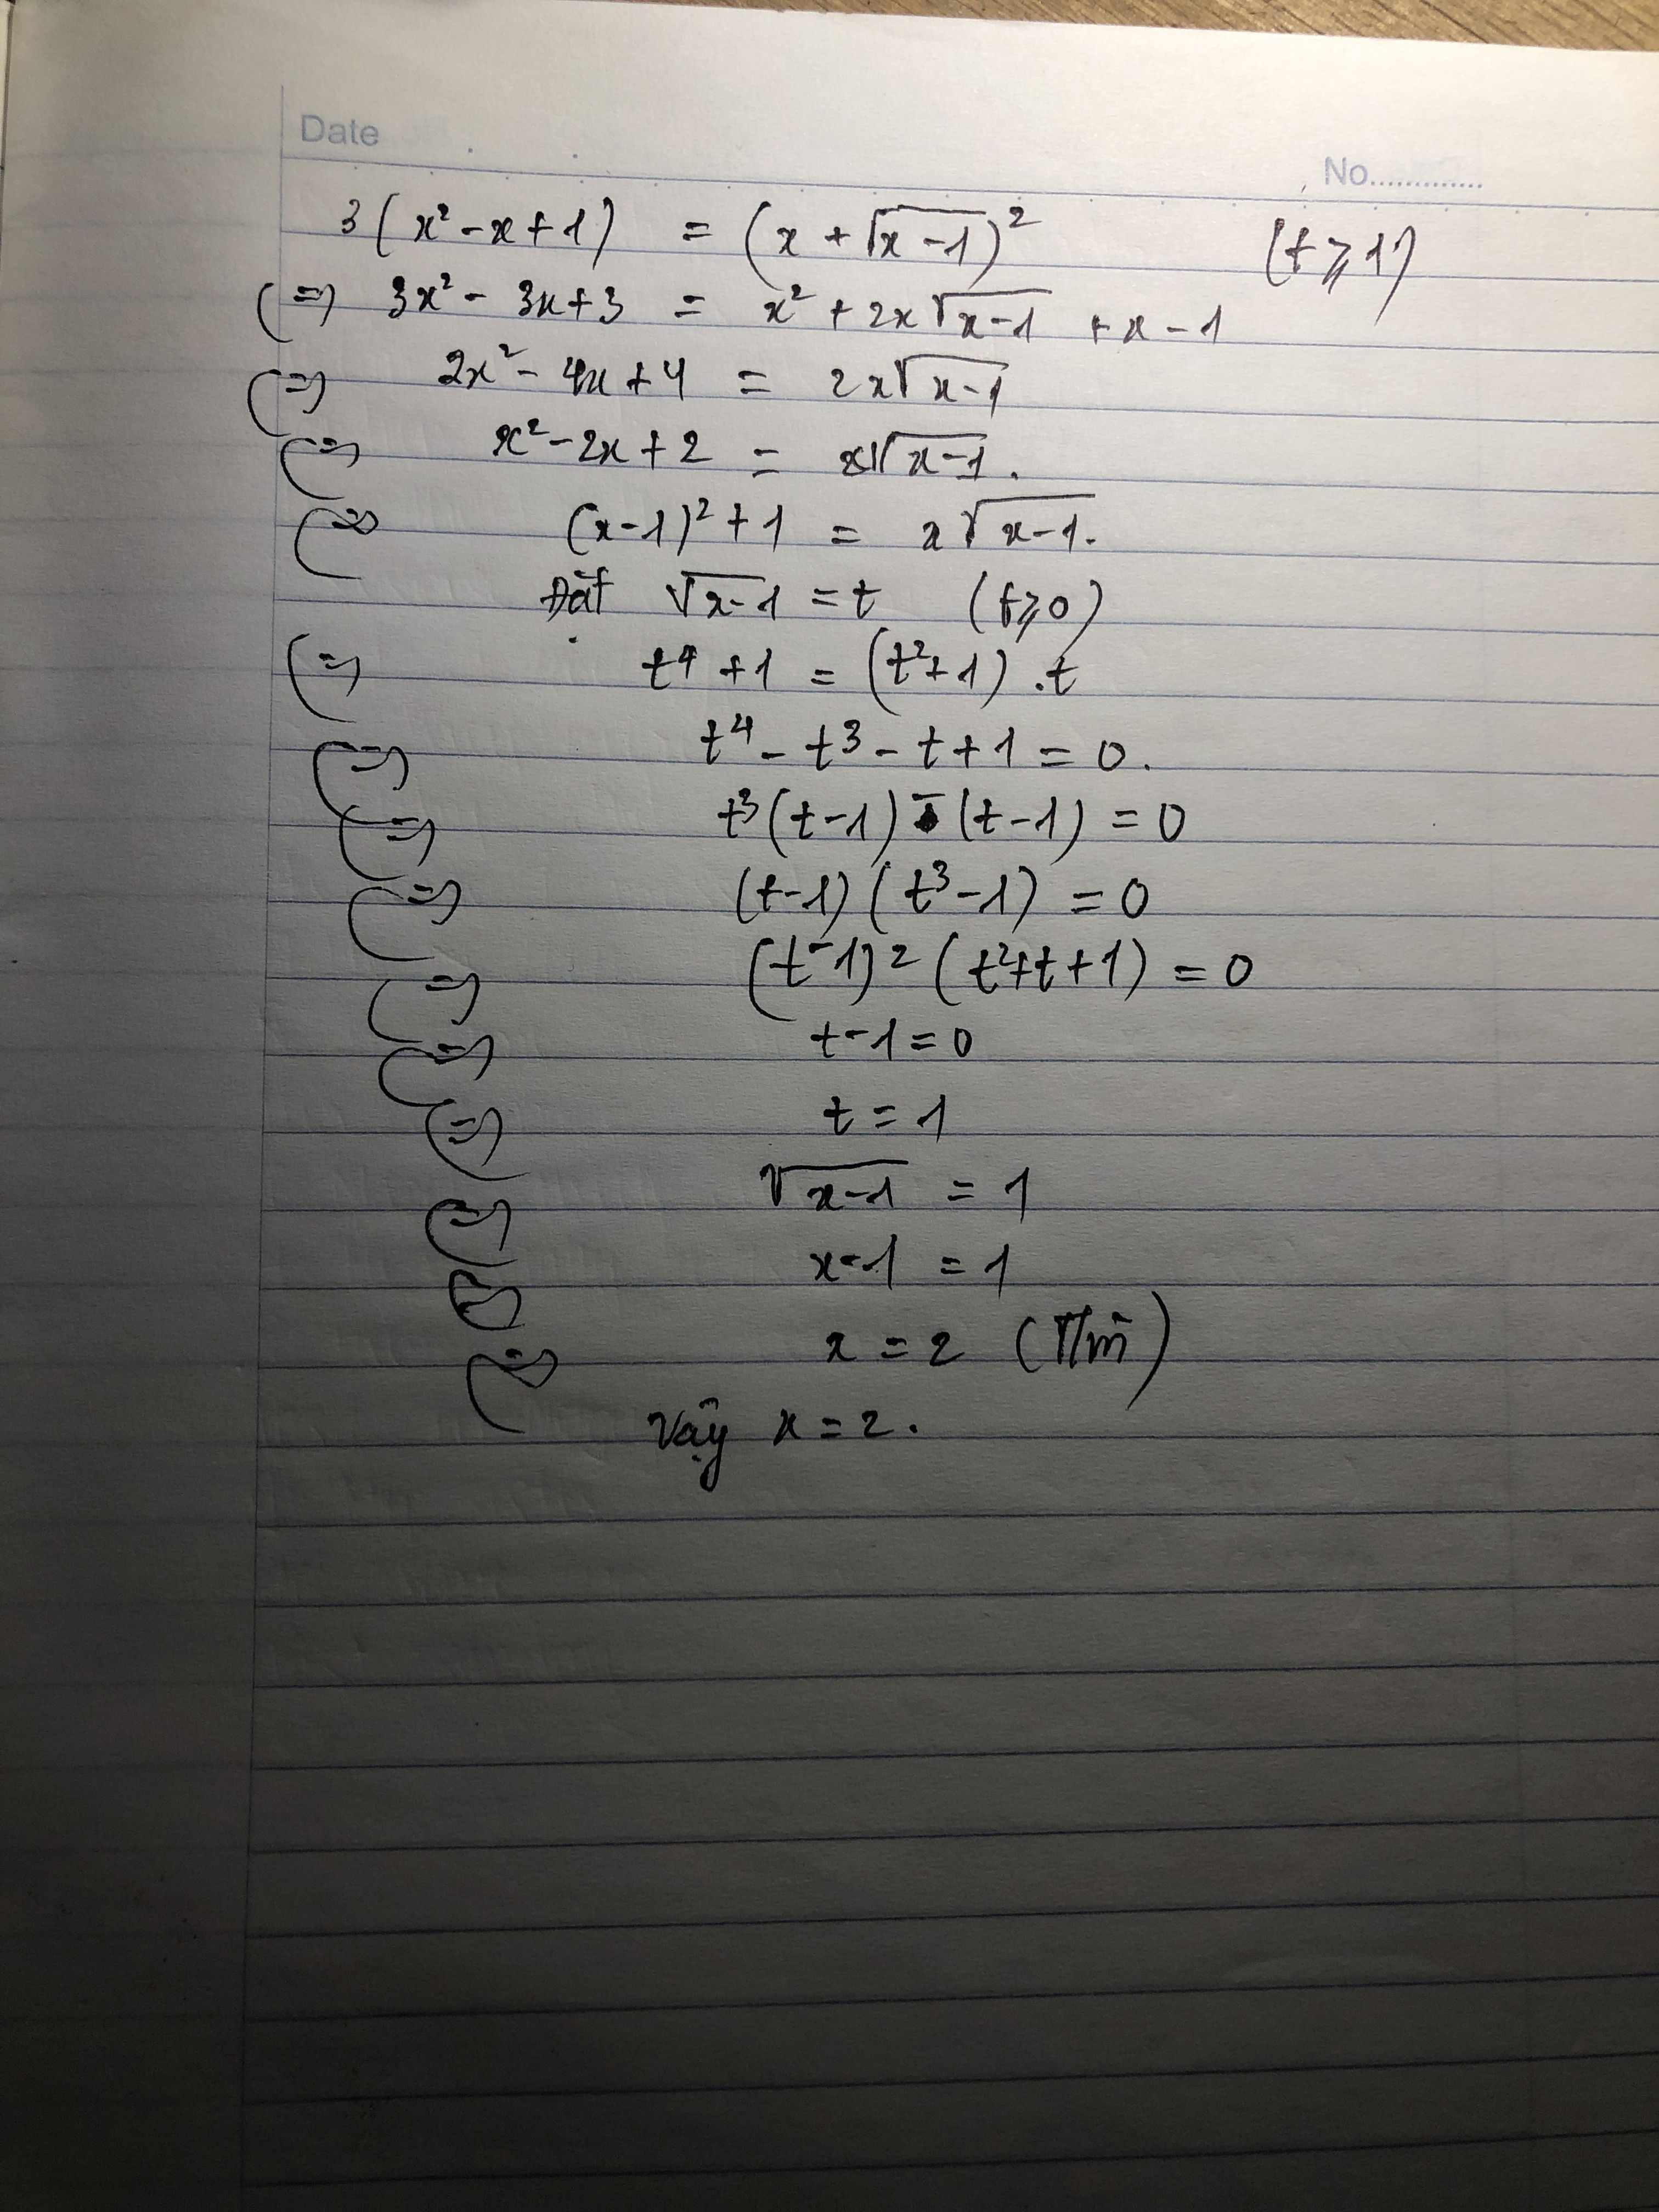 Date
No.............
3(x² - x + 1) = (x + √(x-1))² (t ⩾ 1)
(=) 3x² - 3x + 3 = x² + 2x√(x-1) + x - 1
(=) 2x² - 4x + 4 = 2x√(x-1)
(=) x² - 2x + 2 = x√(x-1).
(=) (x-1)² + 1 = x√(x-1).
Đặt √(x-1) = t (t ⩾ 0)
(=) t⁴ + 1 = (t² + 1) .t
(=) t⁴ - t³ - t + 1 = 0.
(=) t³(t-1) - (t-1) = 0
(=) (t-1)(t³-1) = 0
(=) (t-1)²(t²+t+1) = 0
(=) t-1 = 0
(=) t = 1
(=) √(x-1) = 1
x-1 = 1
(=) x = 2 (T/m)
Vậy x = 2.